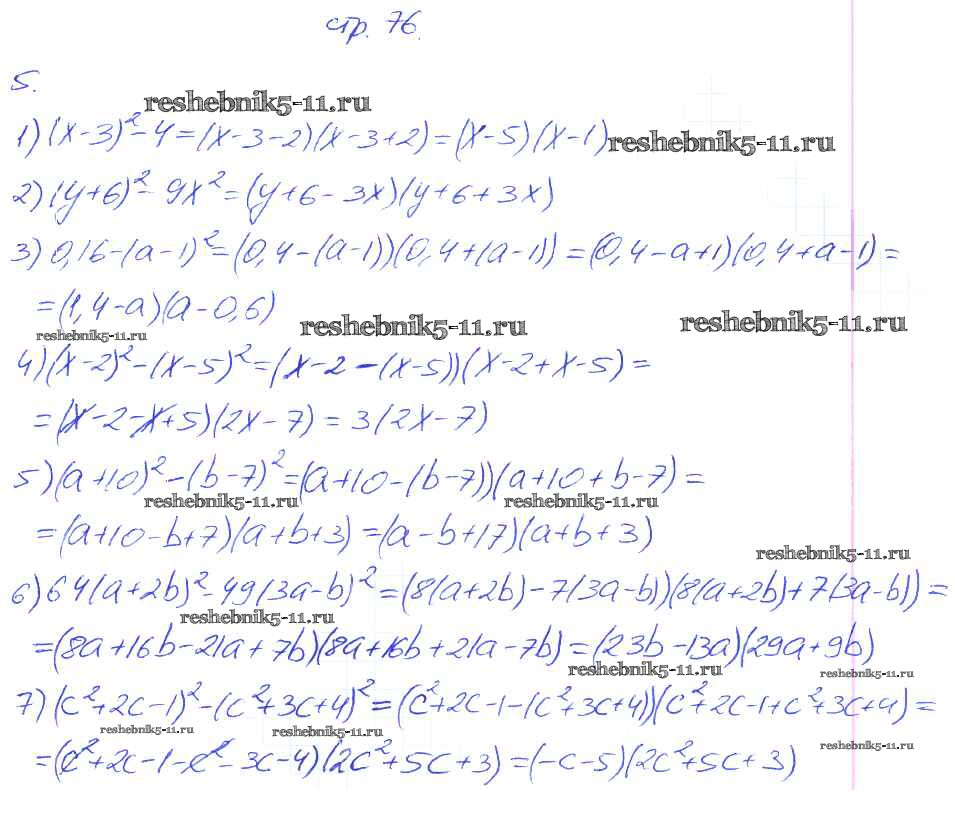 стр. 76.
5.
reshebnik5-11.ru
1) (x-3)²-4=(x-3-2)(x-3+2)=(x-5)(x-1) reshebnik5-11.ru
2) (y+6)²-9x²=(y+6-3x)(y+6+3x)
3) 0,16-(a-1)²=(0,4-(a-1))(0,4+(a-1))=(0,4-a+1)(0,4+a-1)=
=(1,4-a)(a-0,6)
reshebnik5-11.ru reshebnik5-11.ru reshebnik5-11.ru
4) (x-2)²-(x-5)²=(x-2-(x-5))(x-2+x-5)=
=(x-2-x+5)(2x-7)=3(2x-7)
5) (a+10)²-(b-7)²=(a+10-(b-7))(a+10+b-7)=
reshebnik5-11.ru reshebnik5-11.ru
=(a+10-b+7)(a+b+3)=(a-b+17)(a+b+3)
reshebnik5-11.ru
6) 64(a+2b)²-49(3a-b)²=(8(a+2b)-7(3a-b))(8(a+2b)+7(3a-b))=
reshebnik5-11.ru
=(8a+16b-21a+7b)(8a+16b+21a-7b)=(23b-13a)(29a+9b)
reshebnik5-11.ru reshebnik5-11.ru
7) (c²+2c-1)²-(c²+3c+4)²=(c²+2c-1-(c²+3c+4))(c²+2c-1+c²+3c+4)=
reshebnik5-11.ru reshebnik5-11.ru reshebnik5-11.ru
=(c²+2c-1-c²-3c-4)(2c²+5c+3)=(-c-5)(2c²+5c+3)